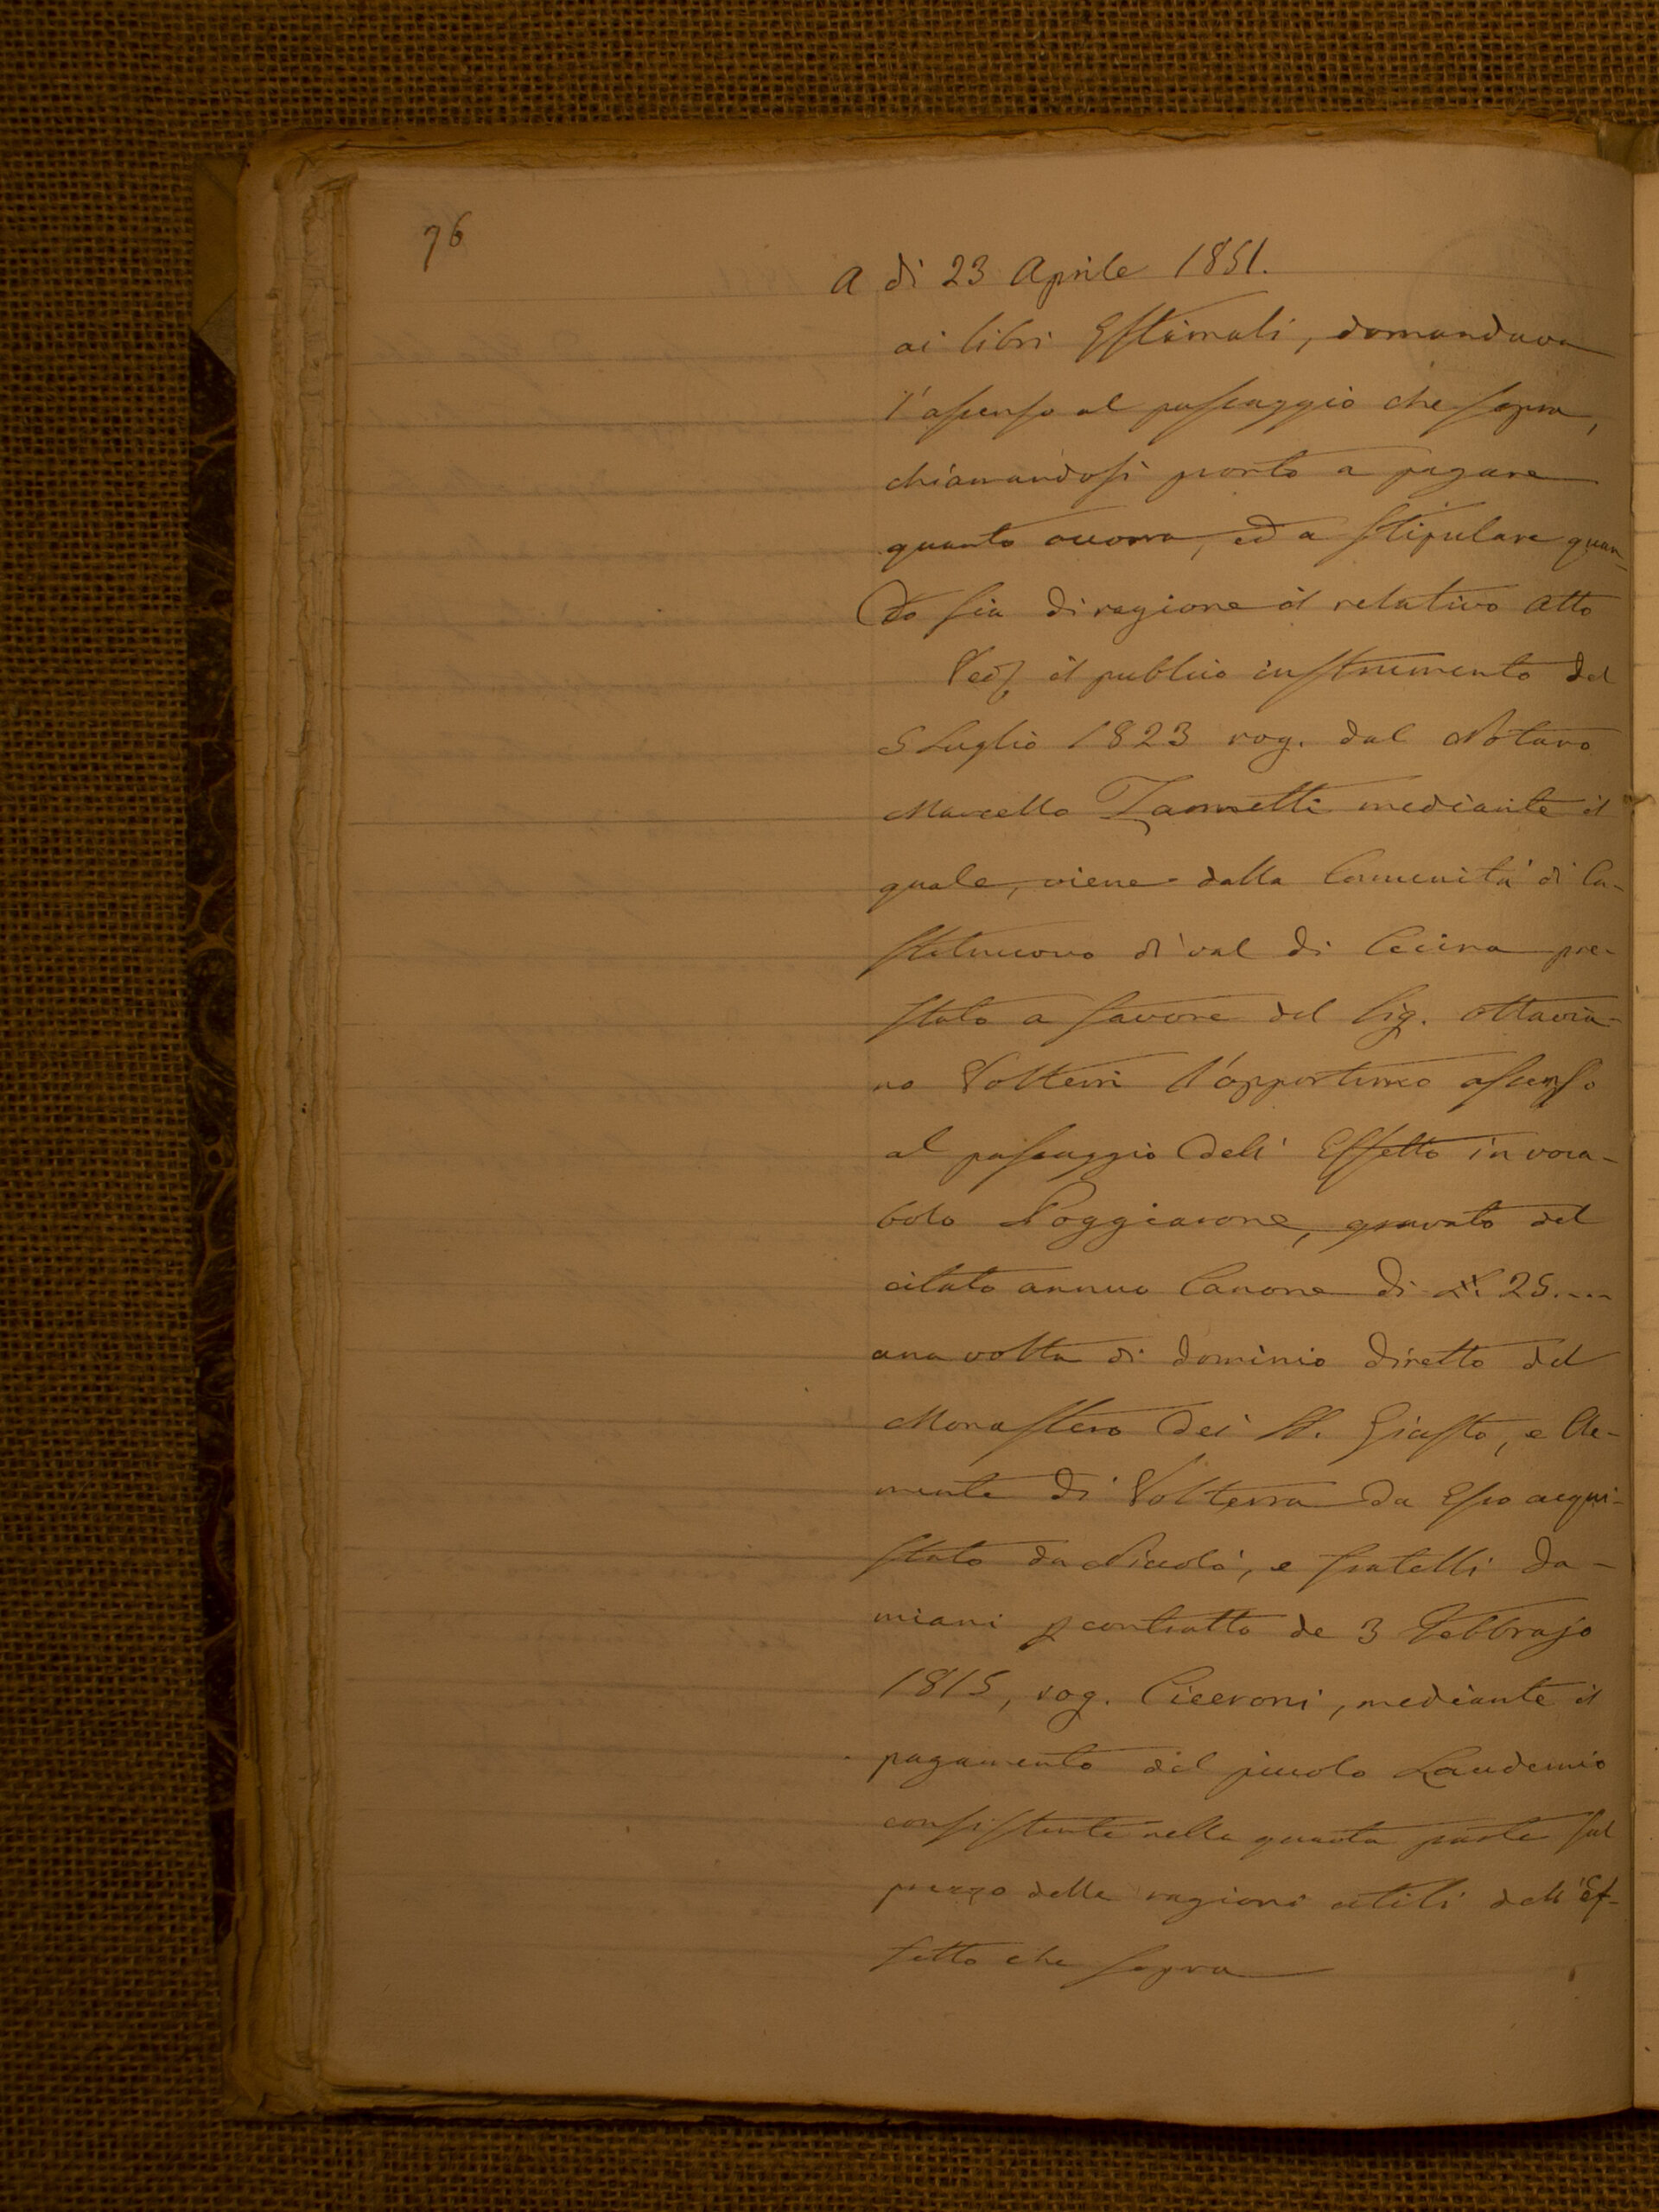 76
A dì 23 Aprile 1851.
ai libri Estimali, domandava
l'assenso al passaggio che sopra,
chiamandosi pronto a pagare
quanto occorra, ed a stipulare quan-
do sia di ragione il relativo atto
Ved. il publico instrumento del
5 Luglio 1823 rog. dal Notaro
Marcello Zannetti mediante il
quale, viene dalla Comunità di Ca-
stelnuovo di val di Cecina pre-
stato a favore del Sig. Ottavia-
no Volterri l'opportuno assenso
al passaggio dell' Effetto in voca-
bolo Poggiarone, gravato del
citato annuo Canone di £ 25....
una volta di dominio diretto del
Monastero dei SS. Giusto, e Cle-
mente di Volterra da Esso acqui-
stato da Niccolò, e fratelli Da-
miani p contratto de 3 Febbrajo
1815, rog. Ciceroni, mediante il
pagamento del piccolo Laudemio
consistente nella quarta parte sul
prezzo delle ragioni utili dell' Ef-
fetto che sopra